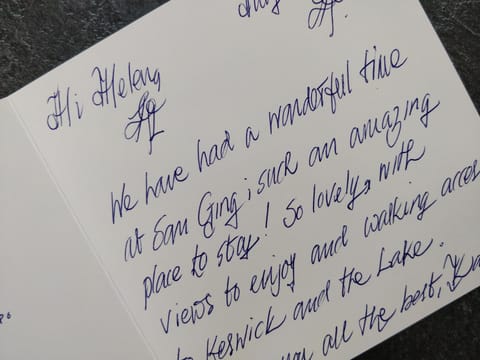 Hi Helena
We have had a wonderful time
at San Ging, such an amazing
place to stay! So lovely, with
views to enjoy and walking
Keswick and the Lake.
all the best,